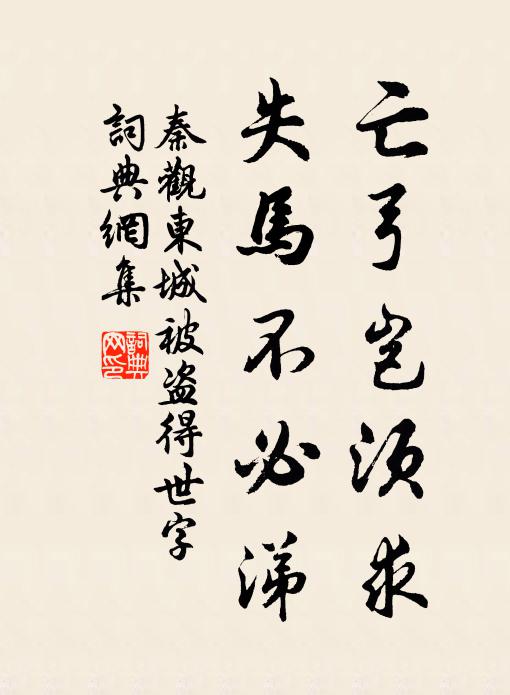 亡弓岂须求
失馬不必涕
秦觀東城被盗得世字
詞典網集
詞典
网印